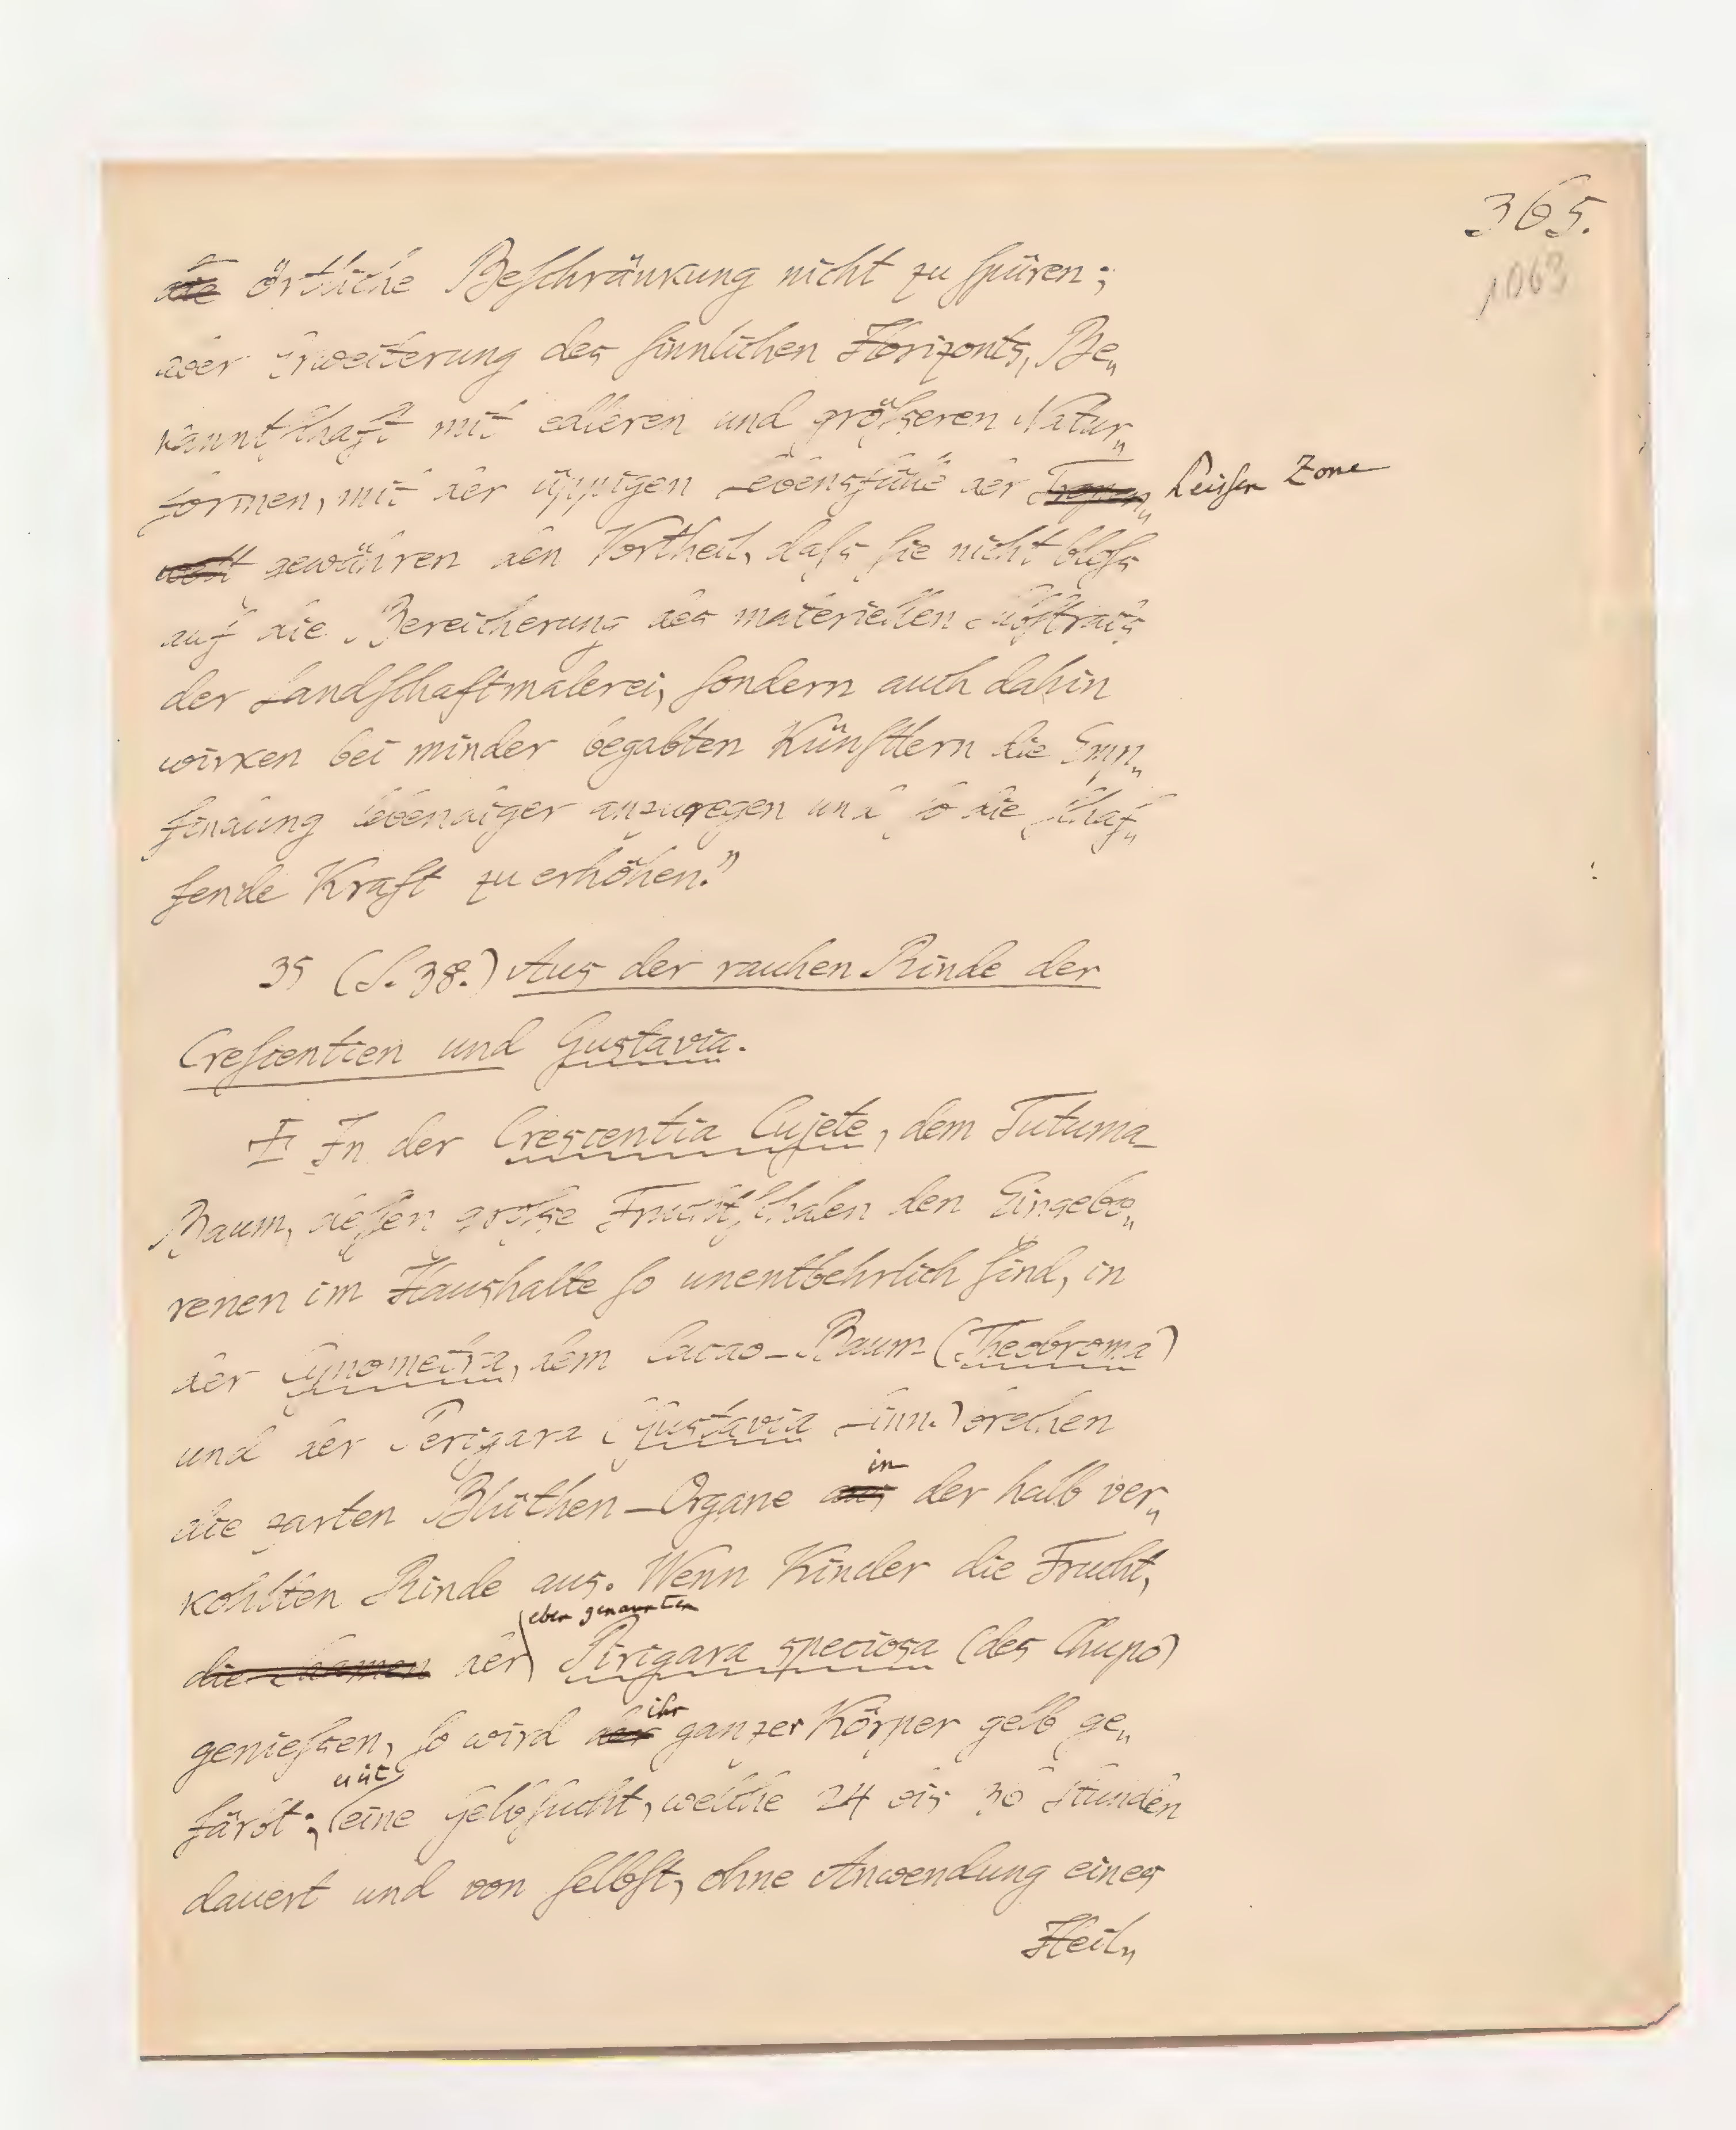 365.
1063
die örtliche Beschränkung nicht zu spüren;
aber Erweiterung des sinnlichen Horizonts, Be„
kanntschaft mit edleren und größeren Natur„
formen, mit der üppigen Lebensfülle der Tropen„ heißen Zone
welt gewähren den Vortheil, daß sie nicht bloß
auf die Bereicherung des materiellen Substrats
der Landschaftmalerei, sondern auch dahin
wirken bei minder begabten Künstlern die Emp„
findung lebendiger anzuregen und so die schaf„
fende Kraft zu erhöhen."
35 (S. 38.) Aus der rauhen Rinde der
Crescentien und Gustavia.
In der Crescentia Cujete, dem Tutuma-
Baum, dessen große Fruchtschalen den Eingebo„
renen im Haushalte so unentbehrlich sind, in
der Cynometra, dem Cacao-Baum (Theobroma)
und der Perigara (Gustavia Linn.) brechen
in
die zarten Blüthen-Organe aus der halb ver„
kohlten Rinde aus. Wenn Kinder die Frucht,
eben genannten
die Samen der Pirigara speciosa (des Chupo)
ihr
genießen, so wird der ganzer Körper gelb ge„
färbt; eine Gelbsucht, welche 24 bis 30 Stunden
dauert und von selbst, ohne Anwendung eines
Heil„